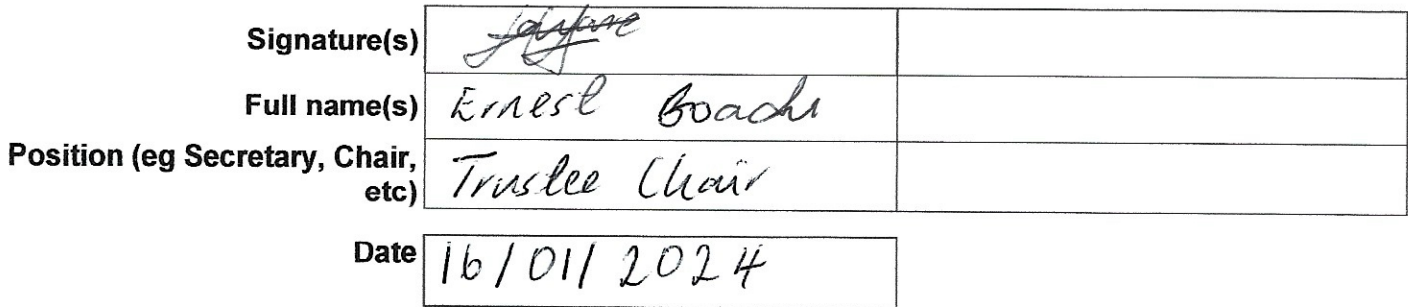 Signature(s)
Full name(s) Ernest
Position (eg Secretary, Chair,
etc) Trustee Chair
Date 16/01/2024